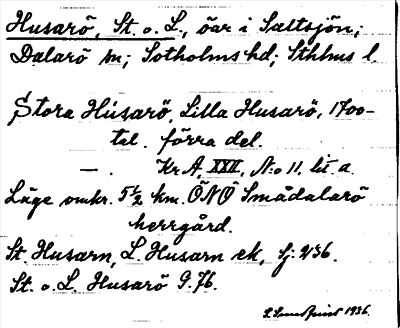 Husarö, St. o. L., öar i Saltsjön;
Dalarö sn; Sotholms hd; Sthlms l.
Stora Húsarö, Lilla Husarö, 1700-
tal. förra del.
— . Kr A, XXII, N:o 11, lit a.
Läge omkr. 5½ km. ÖNÖ Smådalarö
herrgård.
St. Husarn, L. Husarn ek, Sj. 236.
St. o. L. Husarö G. 76.
1936.